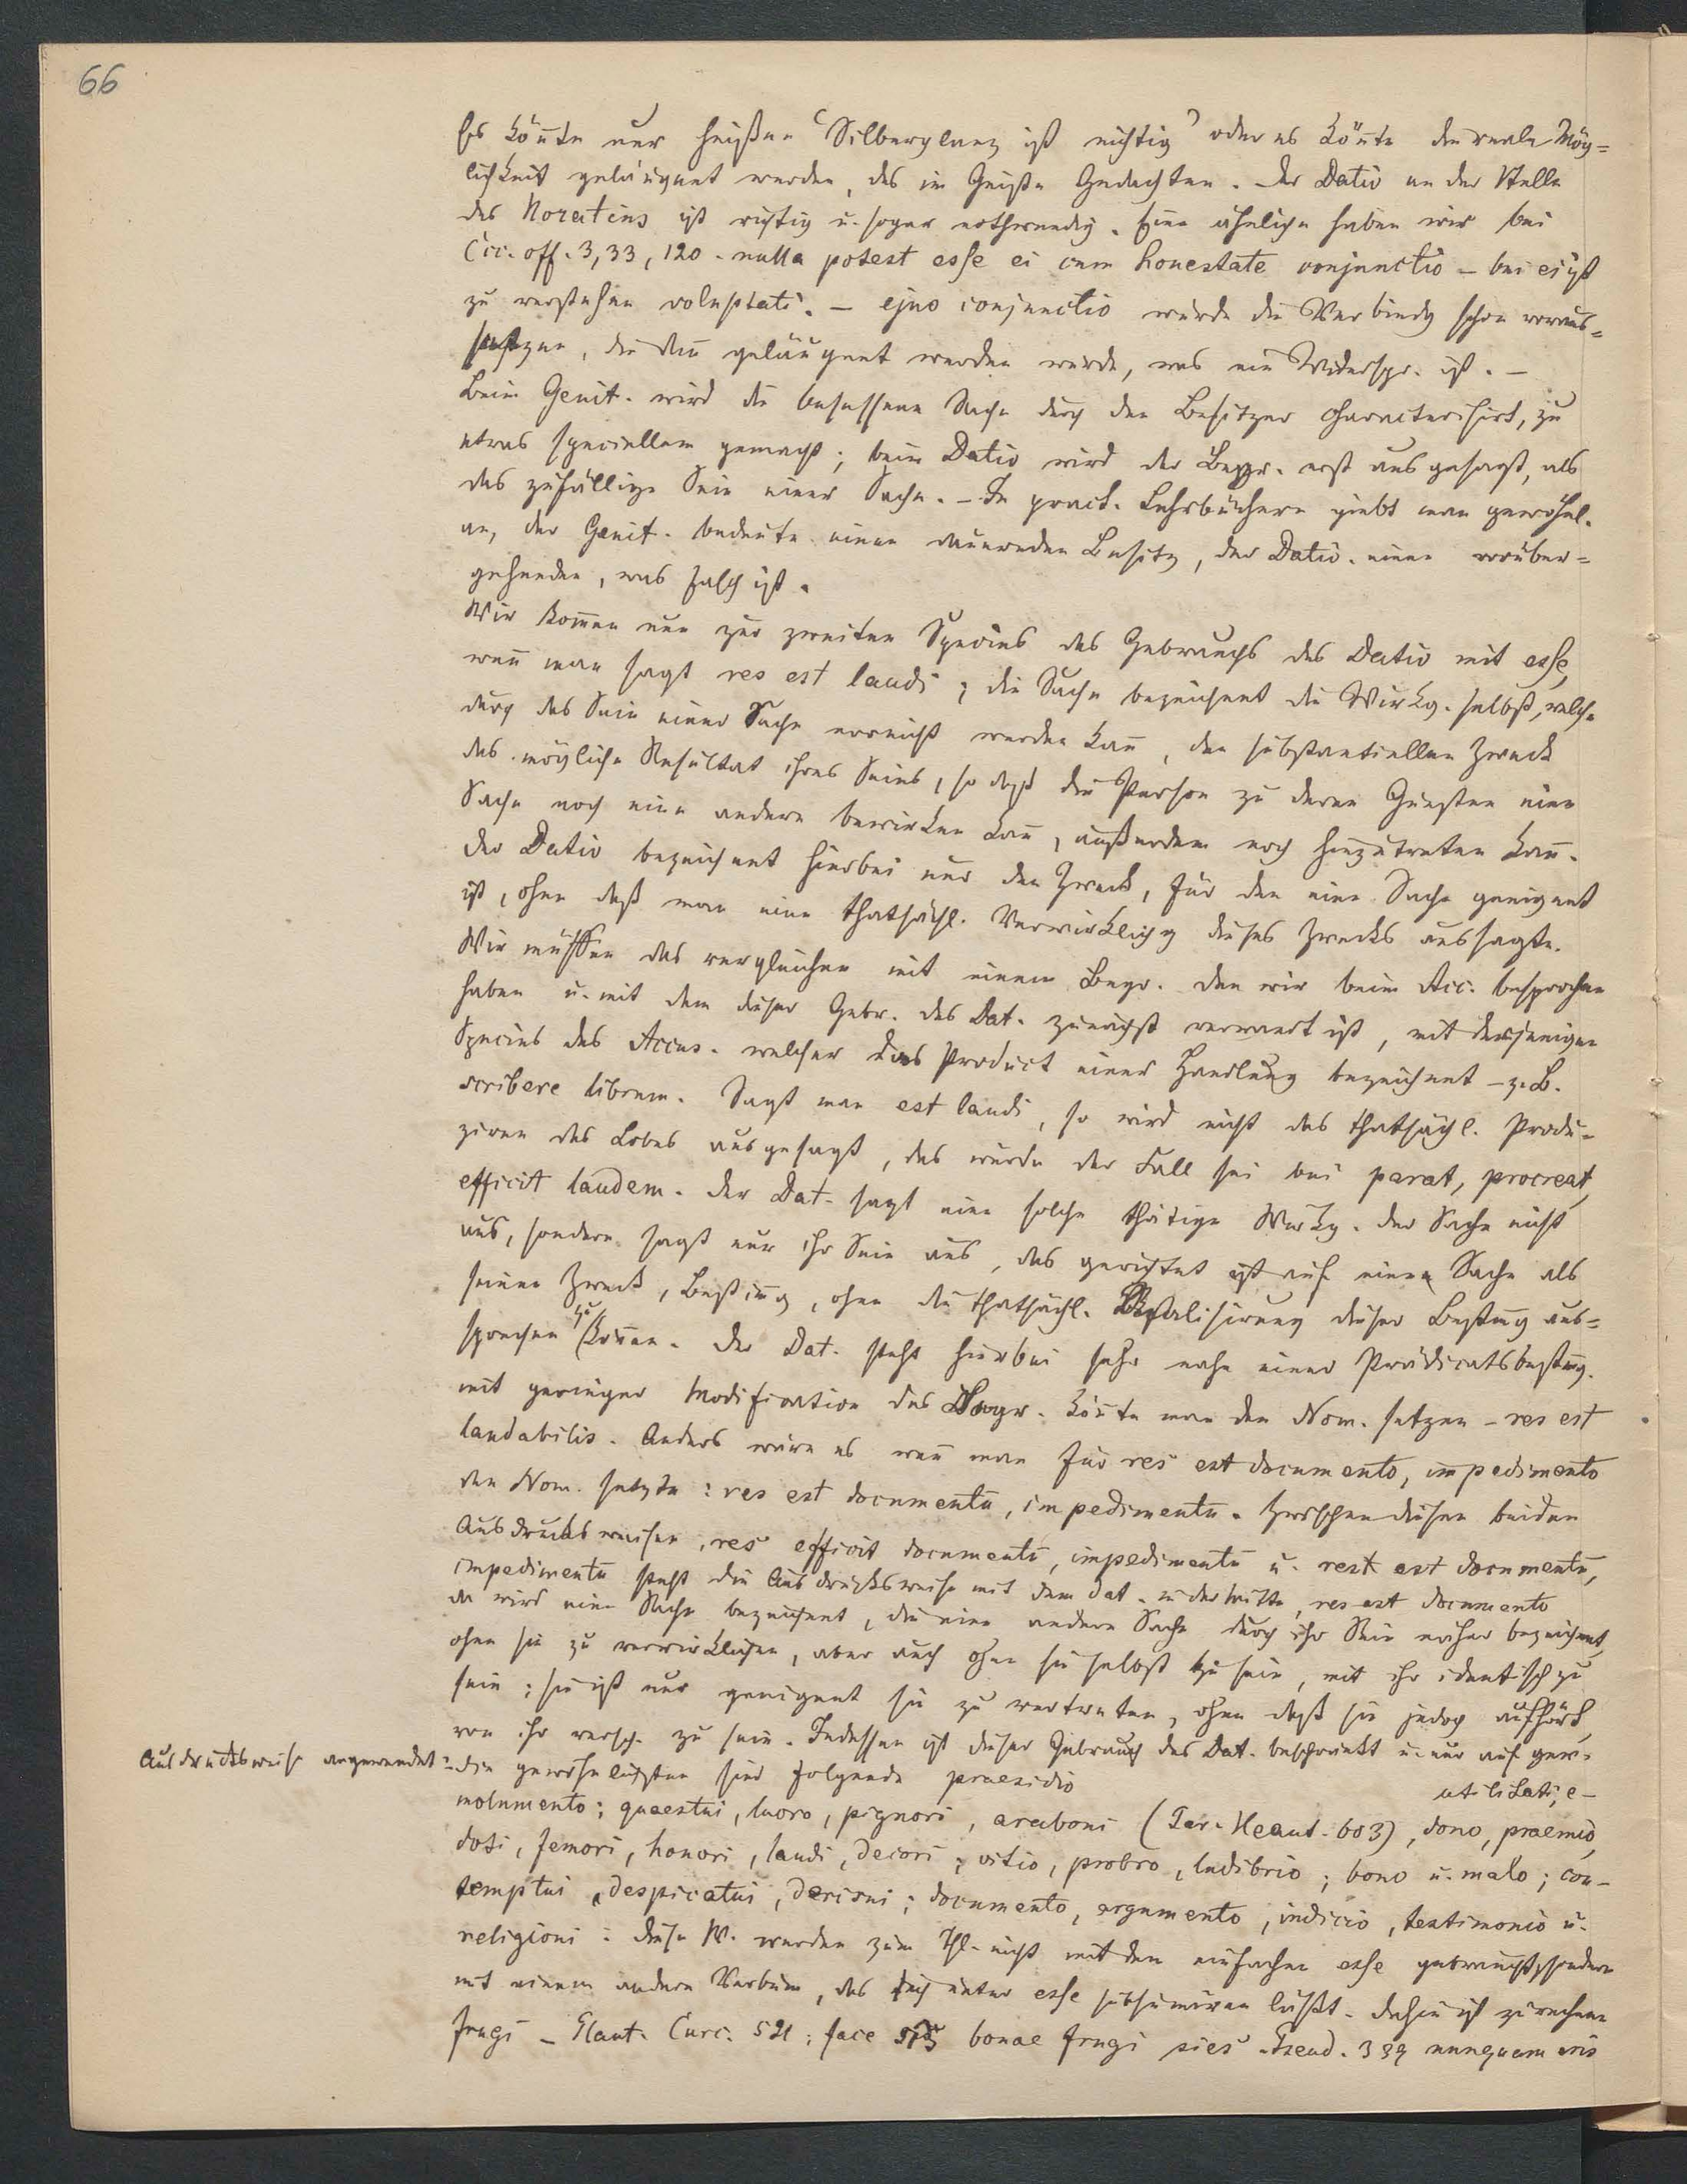 66
Es könnte nur heißen "Silberglanz ist nichtig" oder es könnte die reale Mög=
lichkeit geläugnet werden, des im Geiste Gedachten. Der Dativ an der Stelle
des Horatius ist richtig u. sogar nothwendig. Eine ähnliche haben wir bei
Cic. off. 3, 33, 120. nulla potest esse ei cum honestate conjunctio – bei ei ist
zu verstehen voluptati. – ejus conjunctio würde die Verbindg schon voraus=
setzen, die dann geläugnet werden würde, was ein Widerspr. ist. –
Beim Genit. wird die besessene Sache durch den Besitzer characterisirt, zu
etwas speciellem gemacht; beim Dativ wird der Begr. erst ausgesagt, als
das zufällige Sein einer Sache. – In pract. Lehrbüchern giebt man gewöhnl.
an, der Genit. bedeute einen dauernden Besitz, der Dativ. einen vorüber=
gehenden, was falsch ist.
Wir kommen nun zur zweiten Species des Gebrauchs des Dativ mit esse,
wenn man sagt res est laudi; die Sache bezeichnet die Wirkg. selbst, welche
durch das Sein einer Sache erreicht werden kann, den substantiellen Zweck
das mögliche Resultat ihres Seins, so daß die Person zu deren Gunsten eine
Sache noch eine andere bewirken kann, außerdem noch hinzutreten kann.
Der Dativ bezeichnet hierbei nur den Zweck, für den eine Sache geeignet
ist, ohne daß man eine thatsächl. Verwirklichg dieses Zwecks aussagte.
Wir müssen das vergleichen mit einem Begr. den wir beim Acc. besprochen
haben u. mit dem dieser Gebr. des Dat. zunächst verwandt ist, mit derjenigen
Species des Accus. welcher das Product einer Handlung bezeichnet – z. B.
scribere librum. Sagt man est laudi, so wird nicht das thatsächl. Produ=
ziren des Lobes ausgesagt, das würde der Fall sei bei parat, procreat,
efficit laudem. Der Dat. sagt eine solche thätige Wirkg. der Sache nicht
aus, sondern sagt nur ihr Sein aus, das gerichtet ist auf eine Sache als
seinen Zweck, Bestimmg, ohne die thatsächl. Realisirung dieser Bestimmg aus=
sprechen zu können. Der Dat. steht hierbei sehr nahe einer Prädicatsbestimmg.
mit geringer Modification des Begr. könnte man den Nom. setzen – res est
laudabilis. Anders wäre es wenn man für res est documento, impedimento
den Nom. setzte: res est documentū, impedimentū. Zwischen diesen beiden
Ausdrucksweisen, res efficit documentū, impedimentū u. rest est documentū,
impedimentū steht die Ausdrucksweise mit dem Dat. in der Mitte, res est documento
da wird eine Sache bezeichnet, die eine andere Sache durch ihr Sein näher bezeichnet,
ohne sie zu verwirklichen, aber auch ohne sie selbst zu sein, mit ihr identisch zu
sein; sie ist nur geeignet sie zu vertreten, ohne daß sie jedoch aufhört,
von ihr versch. zu sein. Indessen ist dieser Gebrauch des Dat. beschränkt u. nur auf gew.
Ausdrucksweise angewendet: die gewöhnlichsten sind folgende praesidio utilitati, e–
molumento; quaestui, lucro, pignori, araboni (Ter. Heaut. 603), dono, praemio,
doti, femori, honori, laudi, decori; vitio, probro, ludibrio; bono u. malo; con–
temptui, despicatui, derisui; documento, argumento, indicio, testimonio u.
religioni: diese W. werden zum Thl. nicht mit dem einfachen esse gebraucht, sondern
mit einem andern Verbum, das sich unter esse subsumiren läßt. Dahin ist zu rechnen
frugi – Plaut. Curc. 521: face sis bonae frugi sies. Pseud. 339 nunquam eris